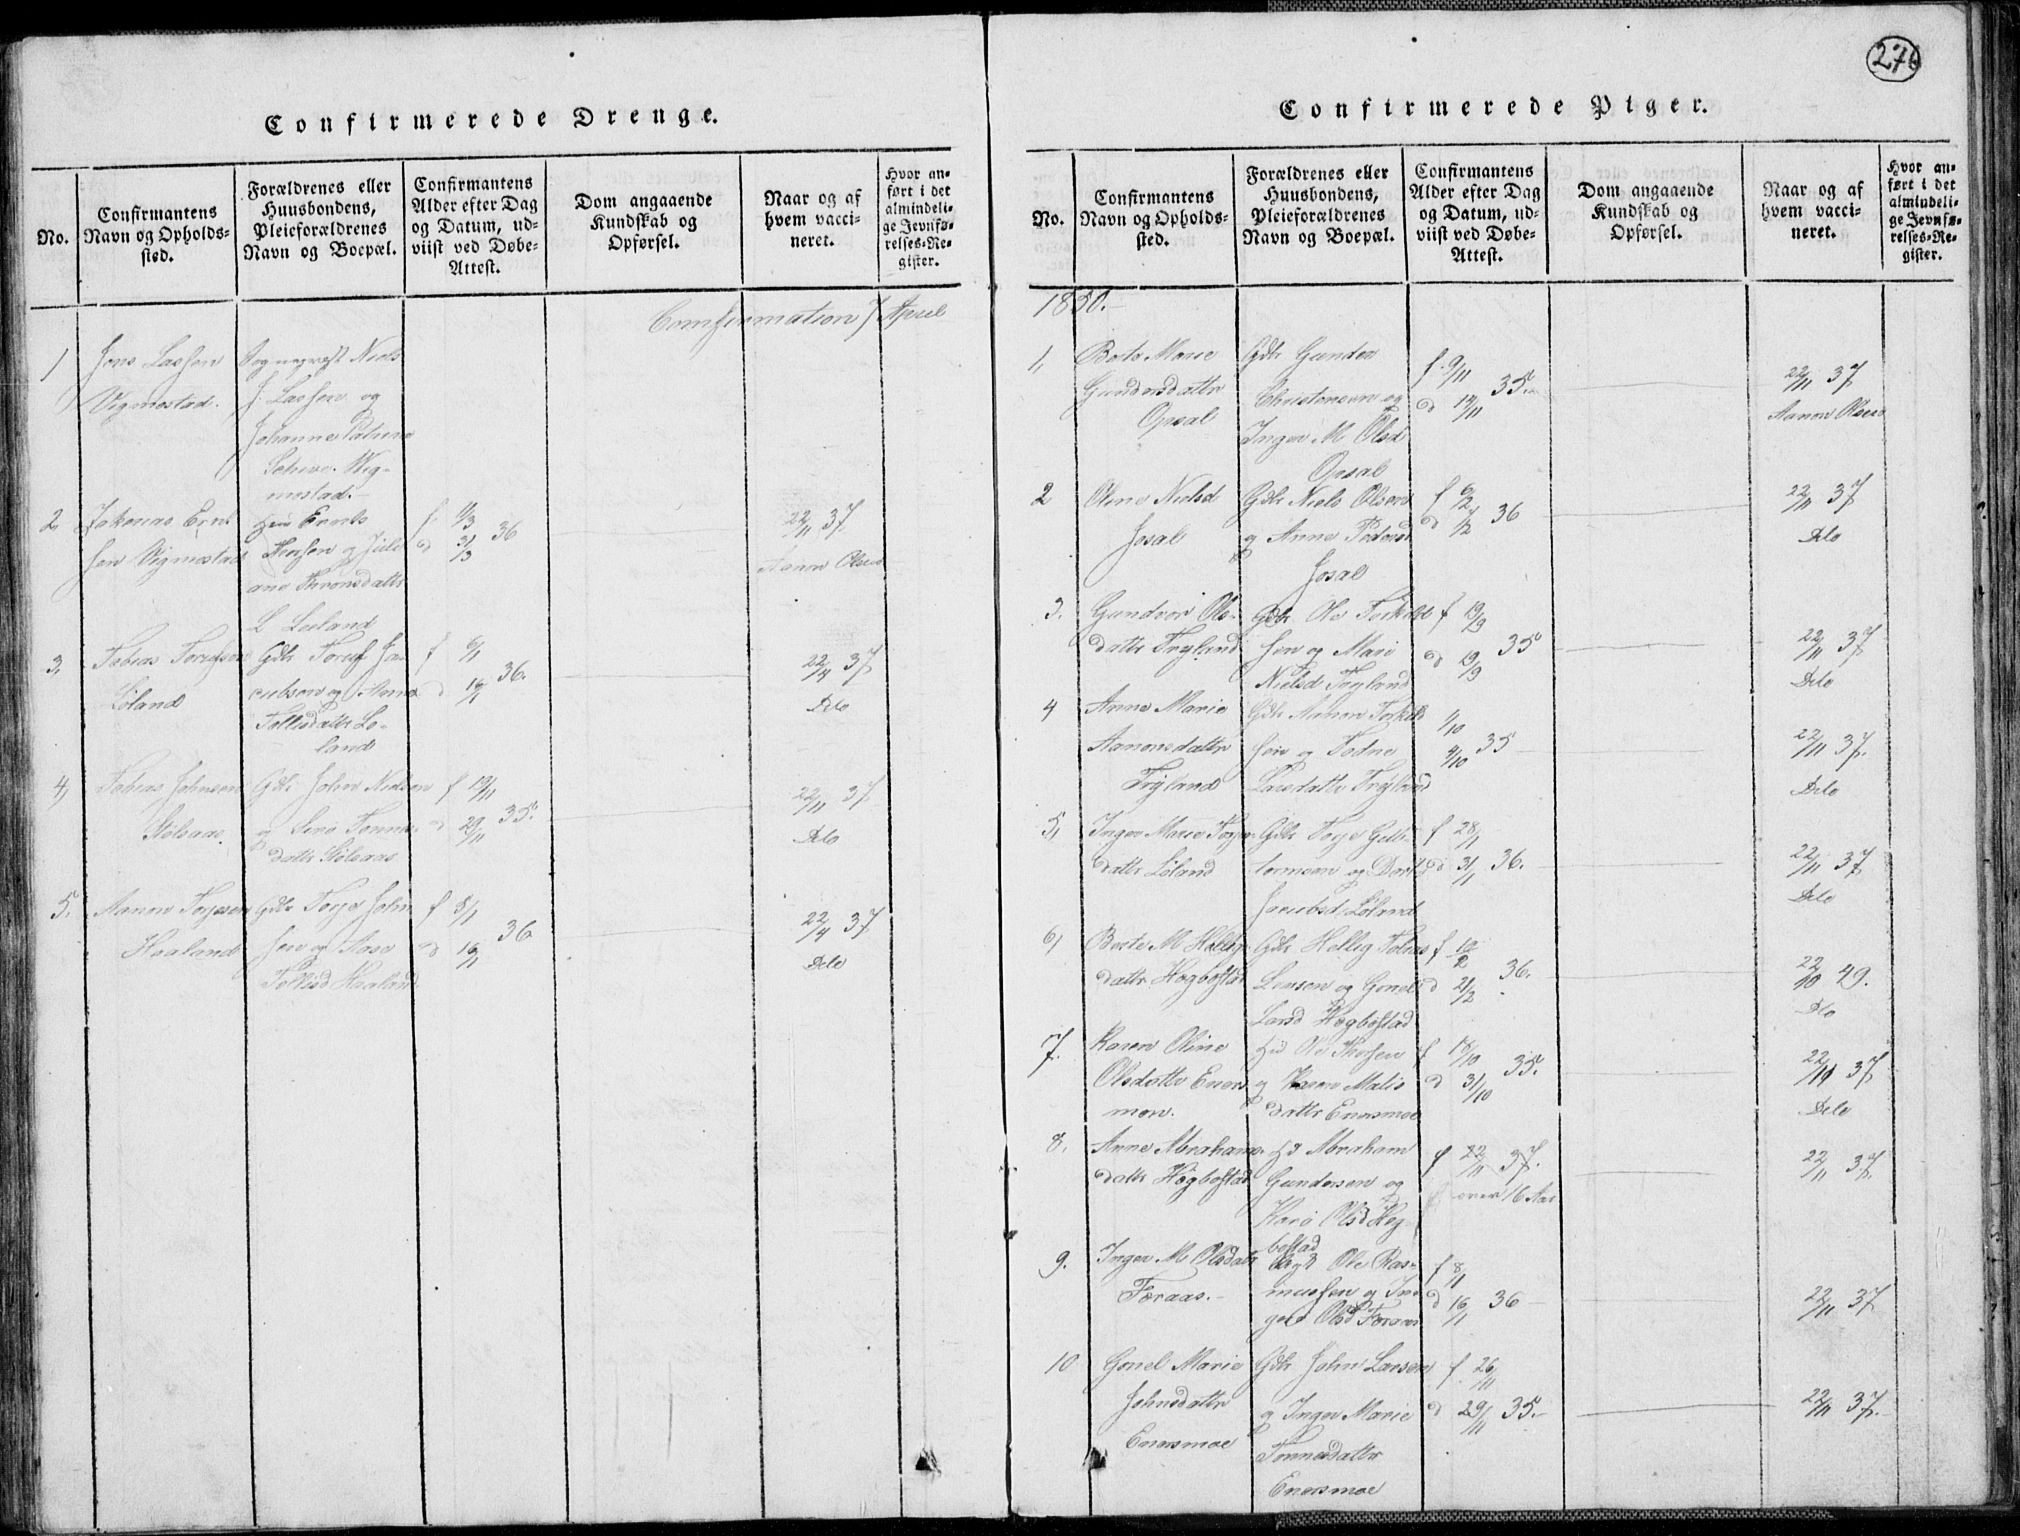 276
Confirmerede Drenge.
No.
Confirmantens
Navn og Opholds-
sted.
Forældrenes eller
Huusbondens,
Pleieforældrenes
Navn og Boepæl.
Confirmantens
Alder efter Dag
og Datum, ud-
viist ved Døbe-
Attest.
Dom angaaende
Kundskab og
Opførsel.
Naar og af
hvem vacci-
neret.
Hvor an-
ført i det
almindeli-
ge Jevnfø-
relses-Re-
gister.
Confirmation 7 April
1
Jens Lassen
Vigmostad.
Sognepræst Niels
J. Lassen og
Johanne
Schive. Vig-
mostad.
2
Ernt
sen Vigmostad
Ernts
og Juli
ane Thronsdattr
L Leland
f. 11/3
d 31/3 36
22/11 37
Aanon Olsen
3,
Tobias Torjussen
Løland
Gdr
cobsen og Anne
Tollisdattr Lø-
land
f 6/1
d 16/1 36.
22/4 37
Dito
4,
Tobias Johnsen
Stølsaas.
Gdr John Nielsen
og Sirie Tønnes
dattr Stølsaas
f 19/11
d 29/11 35.
22/11 37
Dito
5.
Aanon Torjesen
Haaland
Gdr Torje John
sen og Aase
Tollisd Haaland
f 8/1
d 16/1 36
22/4 37
Dito
Confirmerede Piger.
No.
Confirmantens
Navn og Opholds-
sted.
Forældrenes eller
Huusbondens,
Pleieforældrenes
Navn og Boepæl.
Confirmantens
Alder efter Dag
og Datum, ud-
viist ved Døbe-
Attest.
Dom angaaende
Kundskab og
Opførsel.
Naar og af
hvem vacci-
neret.
Hvor an-
ført i det
almindeli-
ge Jevnfø-
relses-Re-
gister.
1850.-
1,
Berte Marie
Gundersdattr
Opsal
Gdr Gunder
Christensen og
Inger M Olsd
Opsal
f 9/11
d 14/11 35.
22/11 37
Aanon Olsen
2
Oline Nielsd
Josal
Gdr Niels Olsen
og Anne Pedersd
Josal
f 6/2
d 7/2 36
22/11 37
Dito
3.
Gundvor Ols-
dattr Tryland
Gdr Ole Torkild
sen og Mari
Nielsd Tryland
f 19/9
d 19/9 35
22/11 37
Dito
4
Anne Marie
Aanonsdattr
Trÿland
Gdr Aanon Torkild
sen og Todne
Larsdattr Trÿland
1/10
4/10 35
22/11 37.
Dito
5,
Inger Marie Torje
dattr Løland
Gdr Torje Gutt-
tormsen og Dort
Jacobsd. Løland
f 28/1
d 31/1 36.
22/11 37
Dito
6,
Berte M Hellig
dattr Høgbostad
Gdr Hellig Tobias
Larsen og Gonel
Larsd Høgbostad
f 12/2
d 21/2 36.
22/10 49.
Dto
7.
Karen Oline
Olsdattr Eners
moe.
Hd Ole Thorsen
og Karen Malis
dattr Enersmoe
f 18/10
d 31/10 35.
22/11 37
Dito
8.
Anne Abrahams-
dattr Høgbostad
Hd Abraham
Gundersen og
Kari Olsd Høg-
bostad
f 22/11 37.
over 16 Aar
22/11 37.
9.
Inger M Olsdattr
Foraas.-
Ole Ras-
mussen og In
gerd Olsd Foraas
f 8/1
d 16/1 36
22/11 37
10
Gonel Marie
Johnsdattr
Enersmoe
Gdr John Larsen
og Inger Marie
Tønnesdattr
Enersmoe
f. 26/11
d 29/11 35.-
22/11 37.